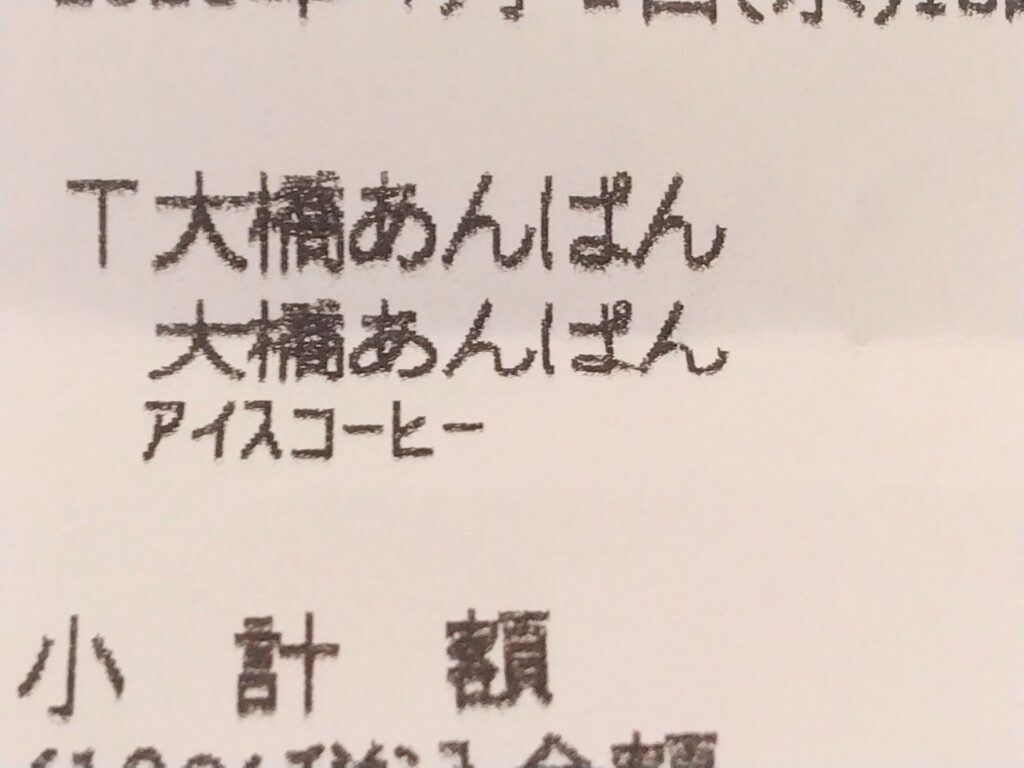 T大橋あんぱん
大橋あんぱん
アイスコーヒー
小 計 額